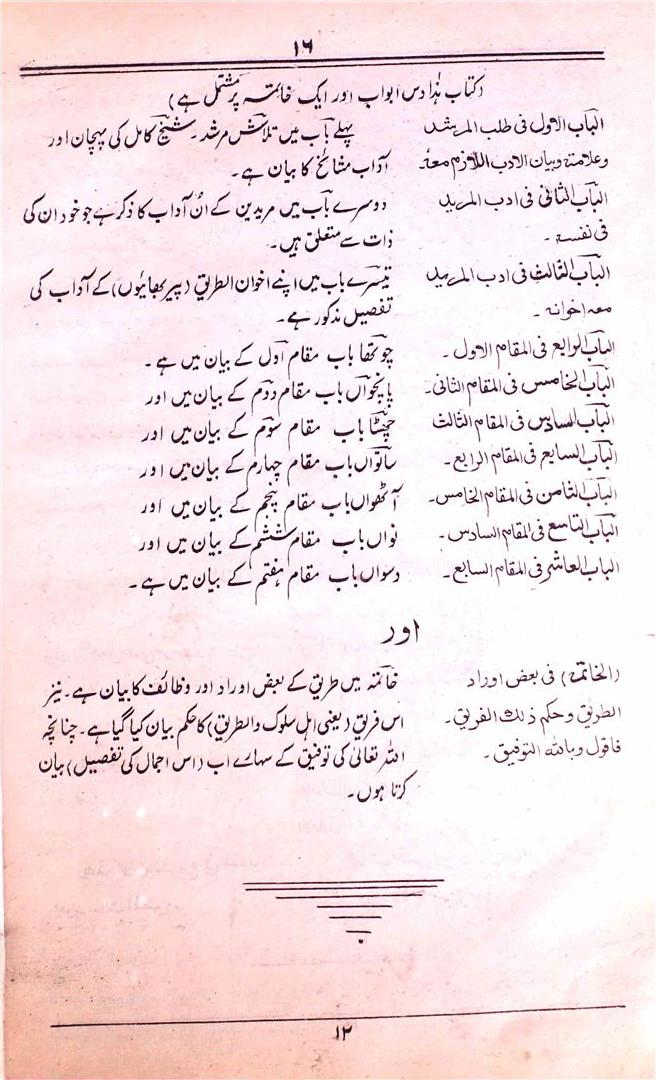 ۱۶
(کتاب ہذا دس ابواب اور ایک خاتمہ پر مشتمل ہے)
الباب الاول فی طلب المرشد
وعلامتہ وبیان الادب اللازم معہ۔
پہلے باب میں تلاش مرشد۔ شیخ کامل کی پہچان اور
آداب مشائخ کا بیان ہے۔
الباب الثانی فی ادب المرید
فی نفسہ۔
دوسرے باب میں مریدین کے ان آداب کا ذکر ہے جو خود ان کی
ذات سے متعلق ہیں۔
الباب الثالث فی ادب المرید
معہ اخوانہ۔
تیسرے باب میں اپنے اخوان الطریق (پیر بھائیوں) کے آداب کی
تفصیل مذکور ہے۔
الباب الرابع فی المقام الاول۔
چوتھا باب مقام اول کے بیان میں ہے۔
الباب الخامس فی المقام الثانی۔
پانچواں باب مقام دوم کے بیان میں اور
الباب السادس فی المقام الثالث
چھٹا باب مقام سوم کے بیان میں اور
الباب السابع فی المقام الرابع۔
ساتواں باب مقام چہارم کے بیان میں اور
الباب الثامن فی المقام الخامس۔
آٹھواں باب مقام پنجم کے بیان میں اور
الباب التاسع فی المقام السادس۔
نواں باب مقام ششم کے بیان میں اور
الباب العاشر فی المقام السابع۔
دسواں باب مقام ہفتم کے بیان میں ہے۔
اور
(الخاتمۃ) فی بعض اوراد
الطریق وحکم ذلک الفریق۔
فاقول وباللہ التوفیق۔
خاتمہ میں طریق کے بعض اوراد اور وظائف کا بیان ہے۔ نیز
اس فریق (یعنی اہل سلوک والطریق) کا حکم بیان کیا گیا ہے۔ چنانچہ
اللہ تعالیٰ کی توفیق کے سہارے اب (اس اجمال کی تفصیل) بیان
کرتا ہوں۔
۱۲